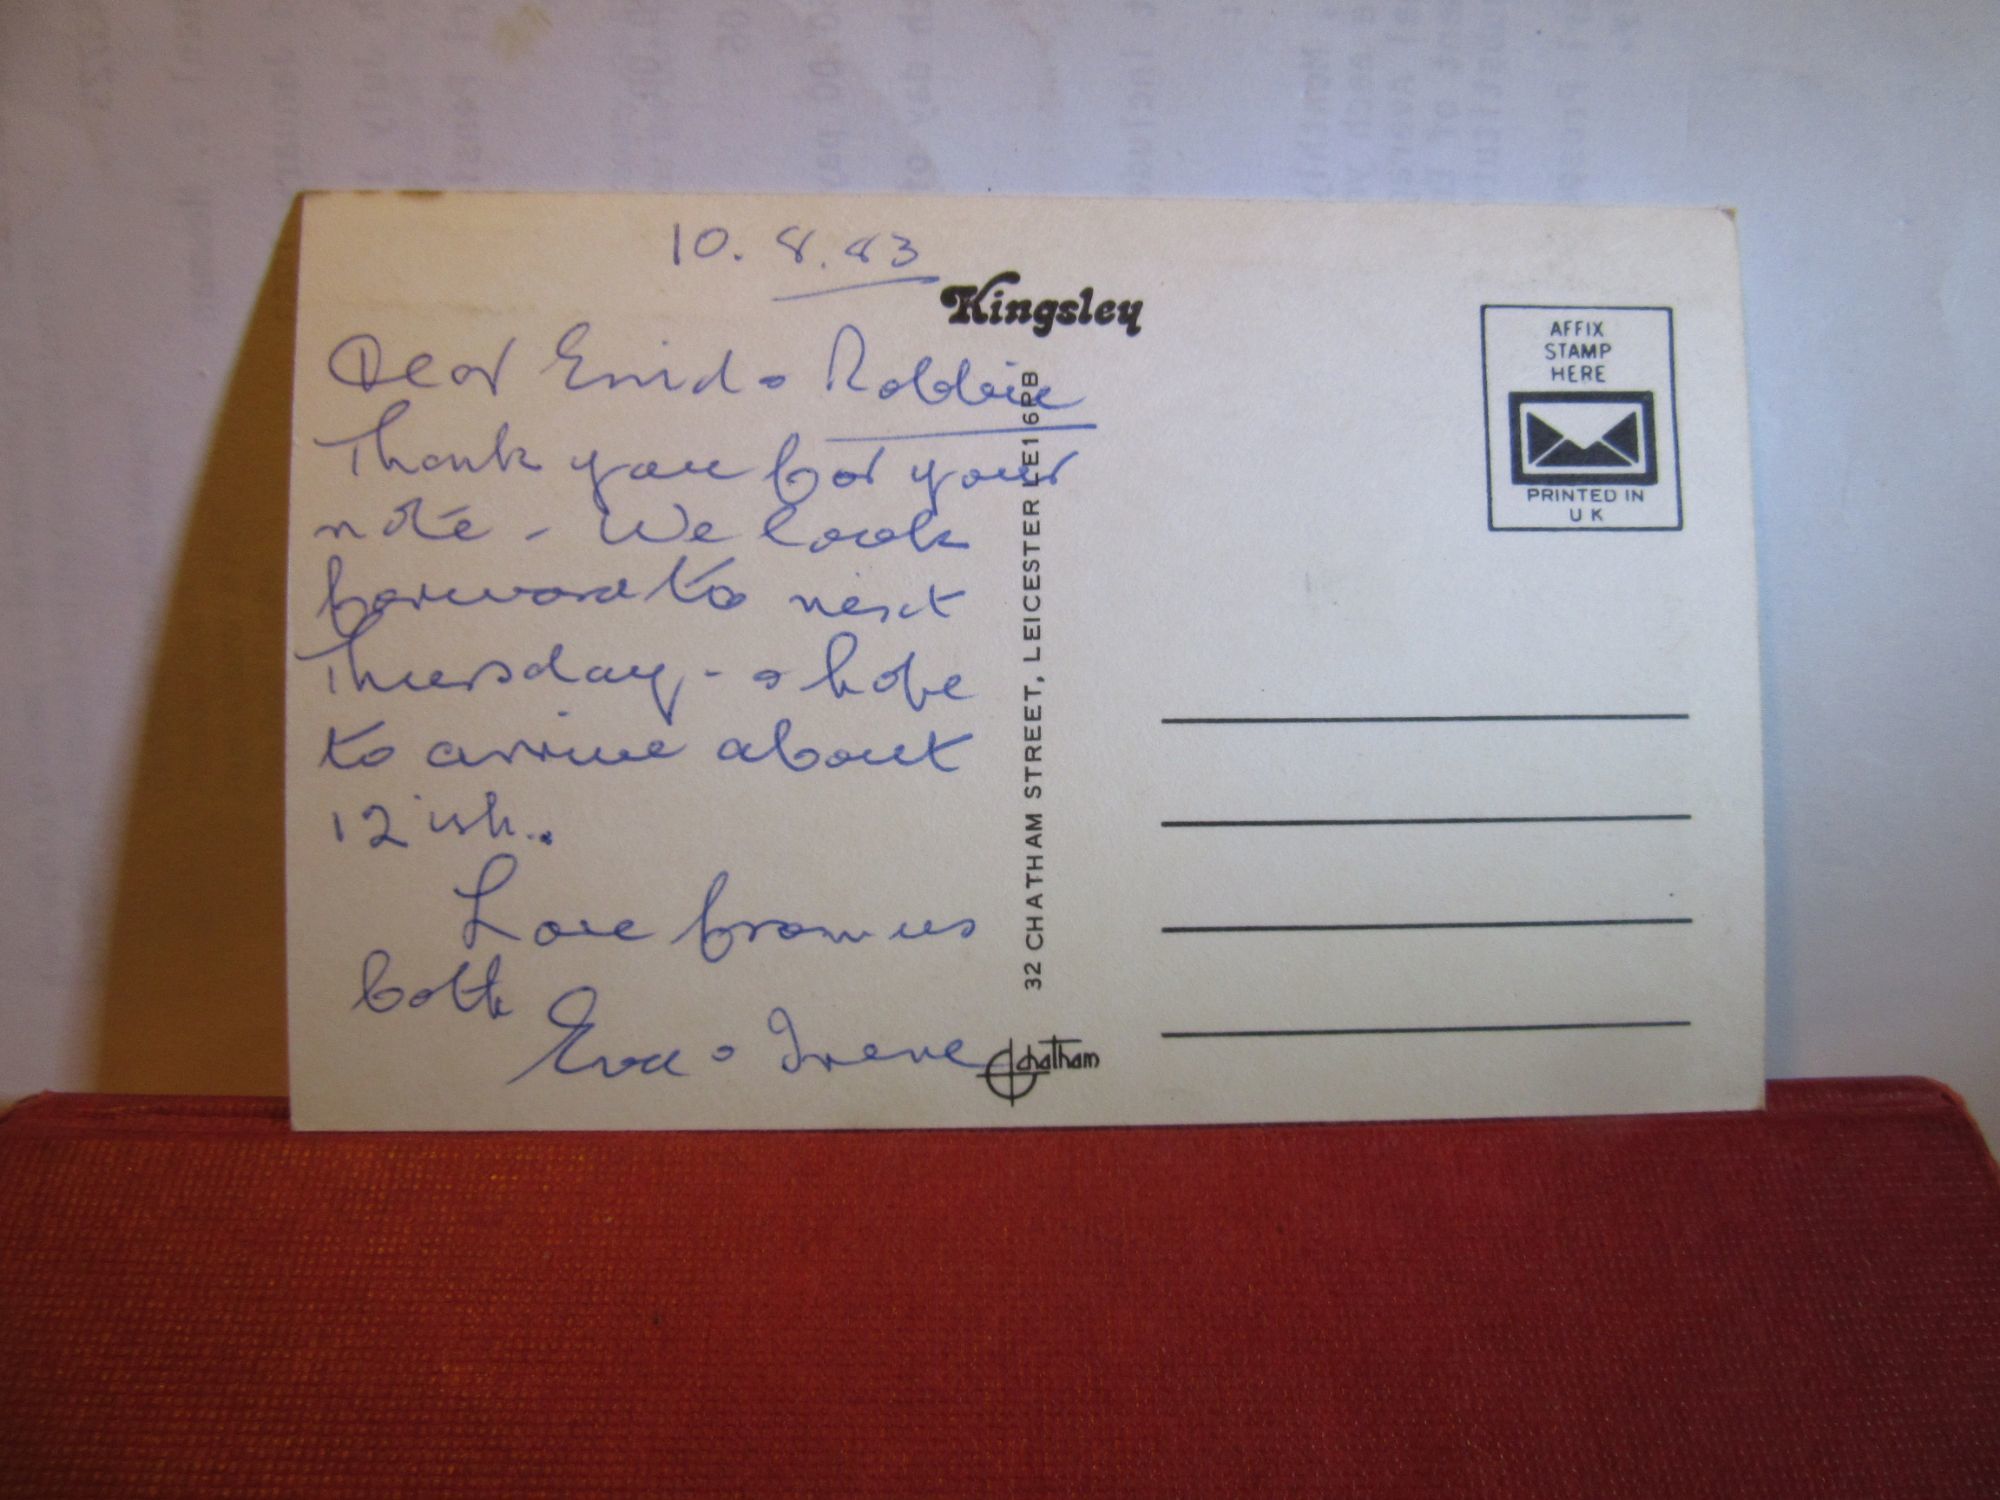 10.8.83
Kingsley
Dear Enid & Robbie
Thank you for your
note - We look
forward to next
Thursday - & hope
to arrive about
12 ish..
Love from us
both
Eva & Irene
32 CHATHAM STREET, LEICESTER LE1 6PB
Chatham
AFFIX
STAMP
HERE
PRINTED IN
UK